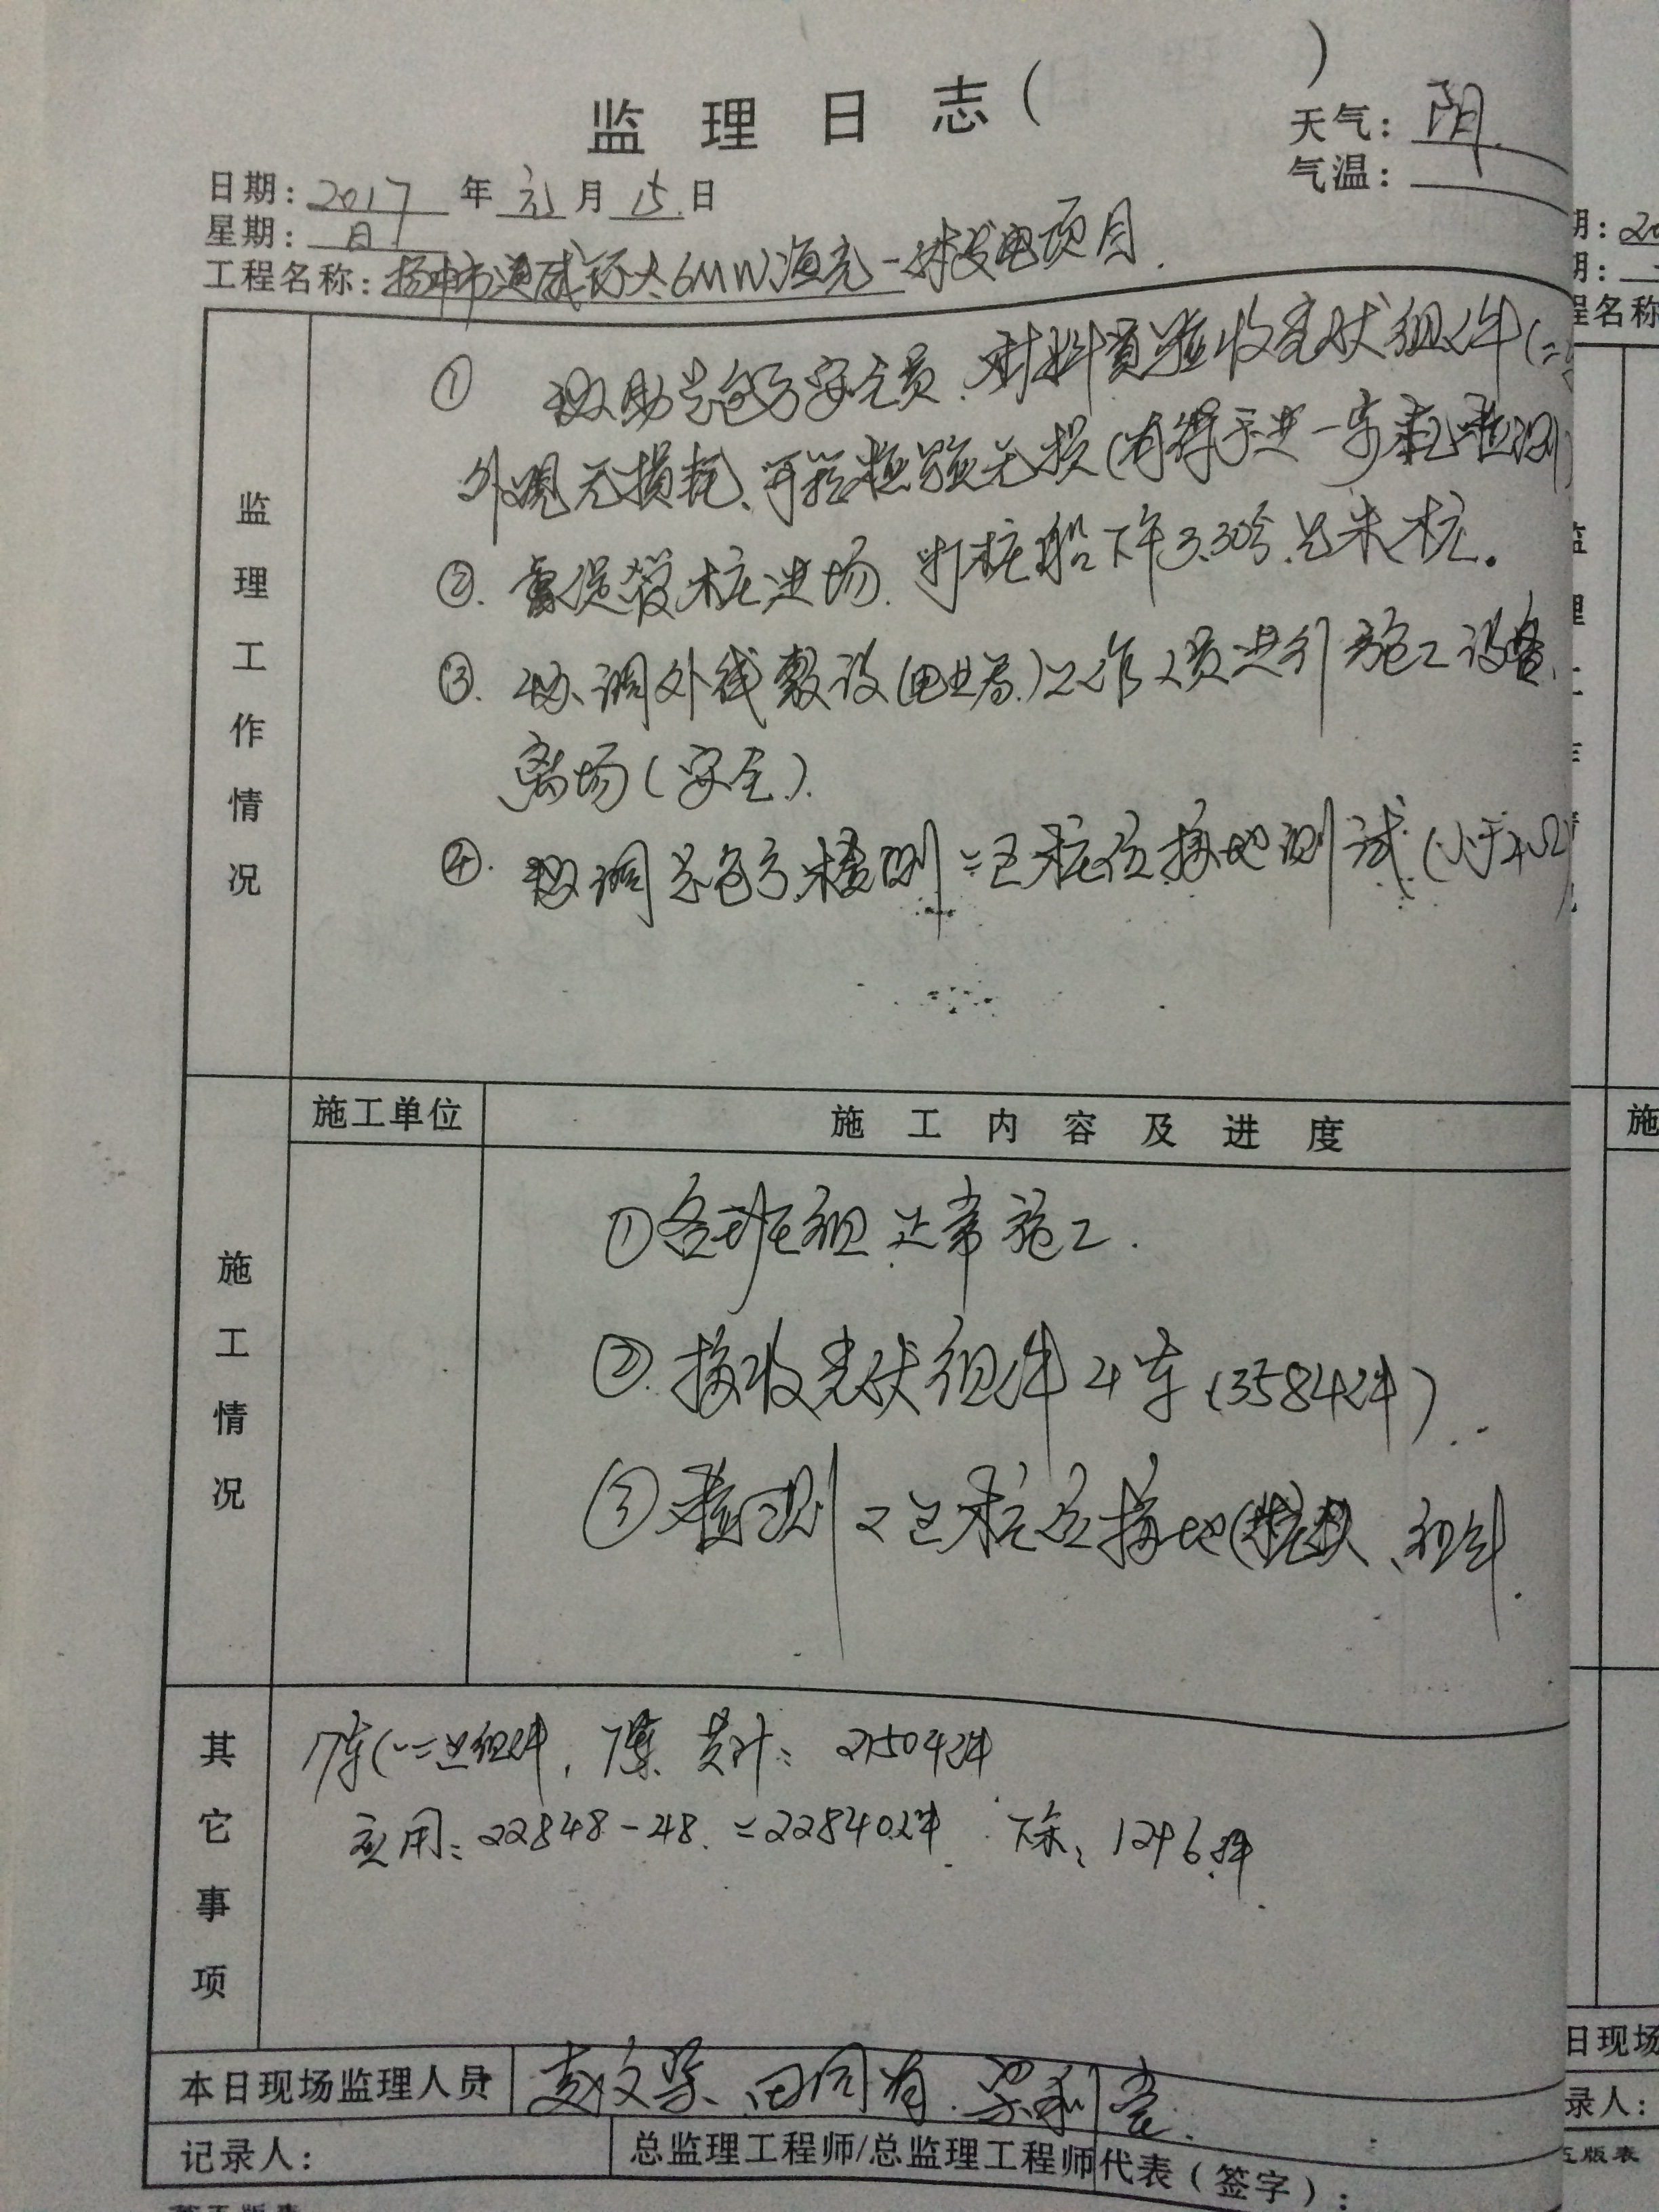 监理日志（ ）
天气：阴
日期：2017年元月15日
气温：
星期：日
工程名称：扬中市通威 6MW渔光一体发电项目.
监理工作情况
① 协助总包方安全员、材料员验收光伏组件(二
外观无损耗、开验无损(有待于进一步检测)
②. 桩进场. 打桩船下午3.30分.已来桩.
③. 协调外线敷设(电业局.)工作人员进行施工设备.
离场(安全).
④. 协调总包方检测二区桩位接地测试.(小于4Ω)
施工单位 施工内容及进度
施工情况
①各班组正常施工.
②.接收光伏组件4车(3584件)
③检测2区桩位接地( 、组件.
其它事项
7车 组件, 共计: 21504件
实用: 22848-48. =22840件. 下余: 1296件
本日现场监理人员 田同有.
记录人： 总监理工程师/总监理工程师代表（签字）：
第五版表
期：20
期：
程名称
监理工作情况
施
日现场
录人：
五版表